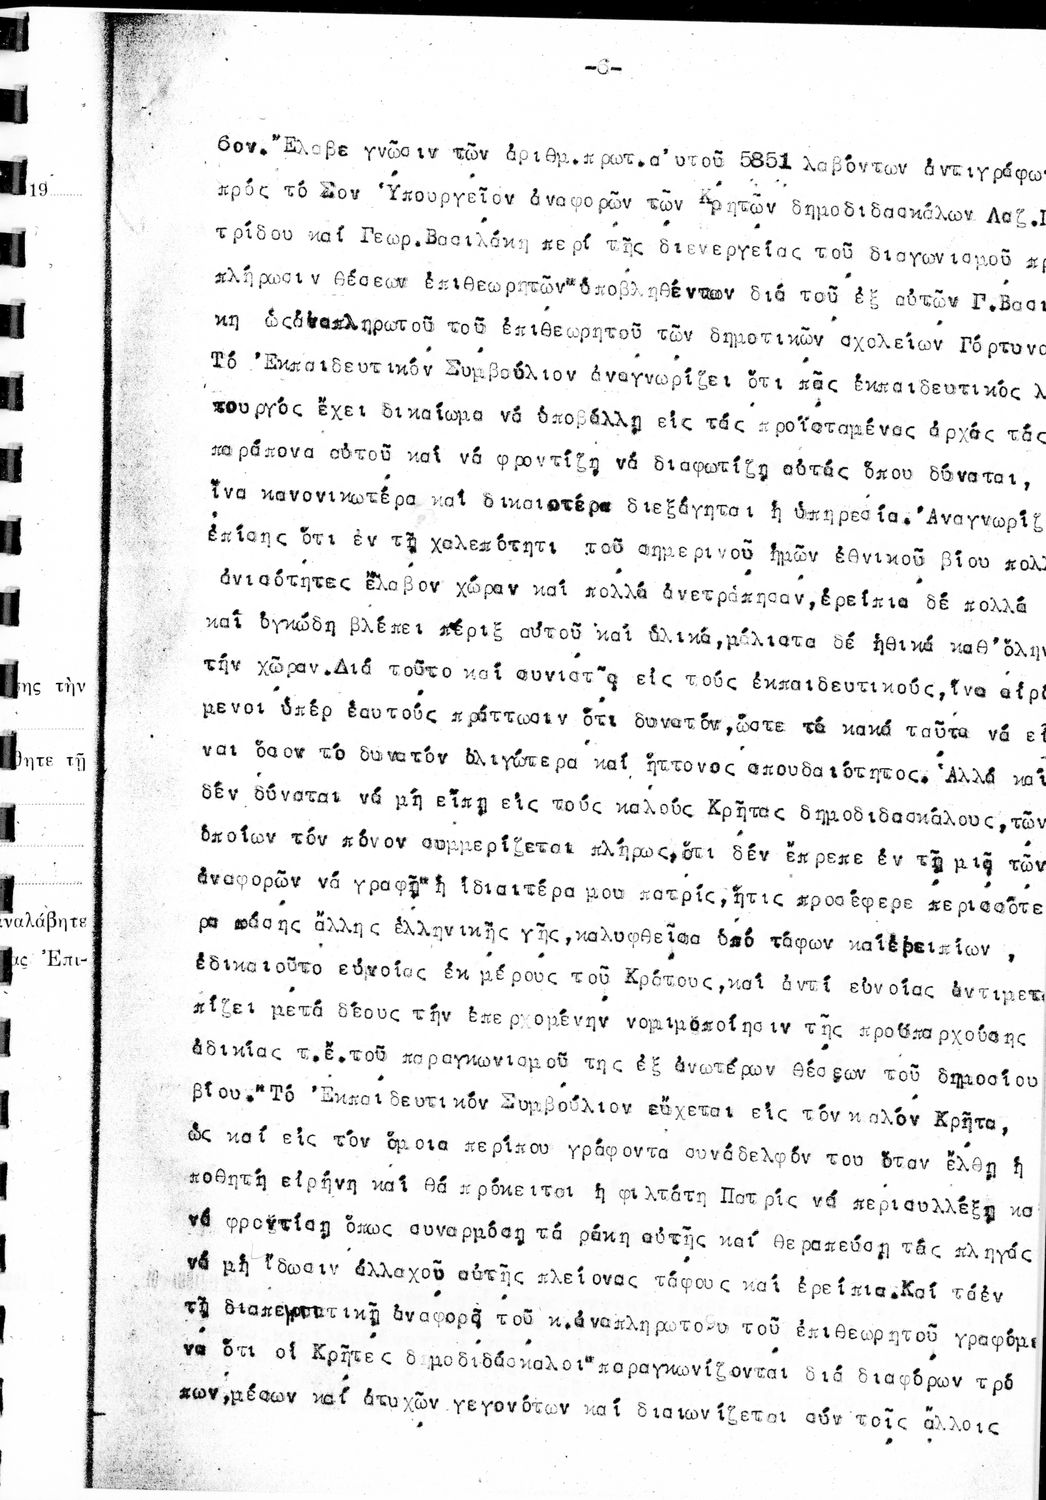 -6-
6ον."Ελαβε γνῶσιν τῶν ἀριθμ.πρωτ.α'υτοῦ 5851 λαβόντων ἀντιγράφω
πρός τό Σον Ὑπουργεῖον ἀναφορῶν τῶν Κρητῶν δημοδιδασκάλων Λαζ.
τρίδου καί Γεωρ.Βασιλάκη περί τῆς διενεργείας τοῦ διαγωνισμοῦ πρ
πλήρωσιν θέσεων ἐπιθεωρητῶν"ὑποβληθέντων διά τοῦ ἐξ αὐτῶν Γ.Βασι
κη ὡςἀναπληρωτοῦ τοῦ ἐπιθεωρητοῦ τῶν δημοτικῶν σχολείων Γόρτυνο
Τό Ἐκπαιδευτικόν Συμβούλιον ἀναγνωρίζει ὅτι πᾶς ἐκπαιδευτικός λ
τουργός ἔχει δικαίωμα νά ὑποβάλλῃ εἰς τάς προϊσταμένας ἀρχάς τάς
παράπονα αὐτοῦ καί νά φροντίζῃ νά διαφωτίζῃ αὐτάς ὅπου δύναται,
ἵνα κανονικωτέρα καί δικαιοτέρα διεξάγηται ἡ ὑπηρεσία.Ἀναγνωρίζ
ἐπίσης ὅτι ἐν τῇ χαλεπότητι τοῦ σημερινοῦ ἡμῶν ἐθνικοῦ βίου πολλ
ἀνισότητες ἔλαβον χώραν καί πολλά ἀνετράπησαν,ἐρείπια δέ πολλά
καί ὀγκώδη βλέπει πέριξ αὐτοῦ καί ὑλικά,μάλιστα δέ ἠθικά καθ'ὅλην
τήν χῶραν.Διά τοῦτο καί συνιστᾷ εἰς τούς ἐκπαιδευτικούς,ἵνα αἰρό
μενοι ὑπέρ ἑαυτούς πράττωσιν ὅτι δυνατόν,ὥστε τά κακά ταῦτα νά εἶ
ναι ὅσον τό δυνατόν ὀλιγώτερα καί ἥττονος σπουδαιότητος.Ἀλλά καί
δέν δύναται νά μή εἴπῃ εἰς τούς καλούς Κρῆτας δημοδιδασκάλους,τῶν
ὁποίων τόν πόνον συμμερίζεται πλήρως,ὅτι δέν ἔπρεπε ἐν τῇ μιᾷ τῶν
ἀναφορῶν νά γραφῇ"ἡ ἰδιαιτέρα μου πατρίς,ἥτις προσέφερε περισσότε
ρα πάσης ἄλλης ἑλληνικῆς γῆς,καλυφθεῖσα ὑπό τάφων καίἐρειπίων ,
ἐδικαιοῦτο εὐνοίας ἐκ μέρους τοῦ Κράτους,καί ἀντί εὐνοίας ἀντιμετω
πίζει μετά δέους τήν ἐπερχομένην νομιμοποίησιν τῆς προϋπαρχούσης
ἀδικίας τ.ἔ.τοῦ παραγκωνισμοῦ της ἐξ ἀνωτέρων θέσεων τοῦ δημοσίου
βίου."Τό Ἐκπαιδευτικόν Συμβούλιον εὔχεται εἰς τόνκαλόν Κρῆτα,
ὡς καί εἰς τόν ὅμοια περίπου γράφοντα συνάδελφόν του ὅταν ἔλθῃ ἡ
ποθητή εἰρήνη καί θά πρόκειται ἡ φιλτάτη Πατρίς νά περισυλλέξῃ κα
νά φροντίσῃ ὅπως συναρμόσῃ τά ράκη αὐτῆς καί θεραπεύσῃ τάς πληγάς
νά μή ἴδωσιν ἀλλαχοῦ αὐτῆς πλείονας τάφους καί ἐρείπια.Καί τάἐν
τῇ διαπεμπτικῇ ἀναφορᾷ τοῦ κ.ἀναπληρωτοῦ τοῦ ἐπιθεωρητοῦ γραφόμε
να ὅτι οἱ Κρῆτες δημοδιδάσκαλοι"παραγκωνίζονται διά διαφόρων τρό
πων,μέσων καί ἀτυχῶν γεγονότων καί διαιωνίζεται σύν τοῖς ἄλλοις
19
σης τὴν
θητε τῇ
ἀναλάβητε
ας Ἐπι-